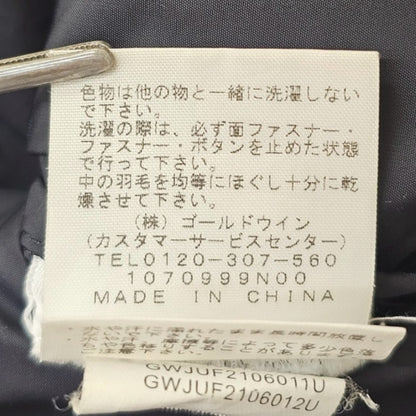 色物は他の物と一緒に洗濯しない
で下さい。
洗濯の際は、必ず面ファスナー・
ファスナー・ボタンを止めた状態
で行って下さい。
中の羽毛を均等にほぐし十分に乾
燥させて下さい。
(株) ゴールドウイン
(カスタマーサービスセンター)
TEL0120-307-560
1070999N00
MADE IN CHINA
・水や汗に濡れたまま長時間放置し
汗、摩擦等によって多少色落
GWJUF2106011U
GWJUF2106012U